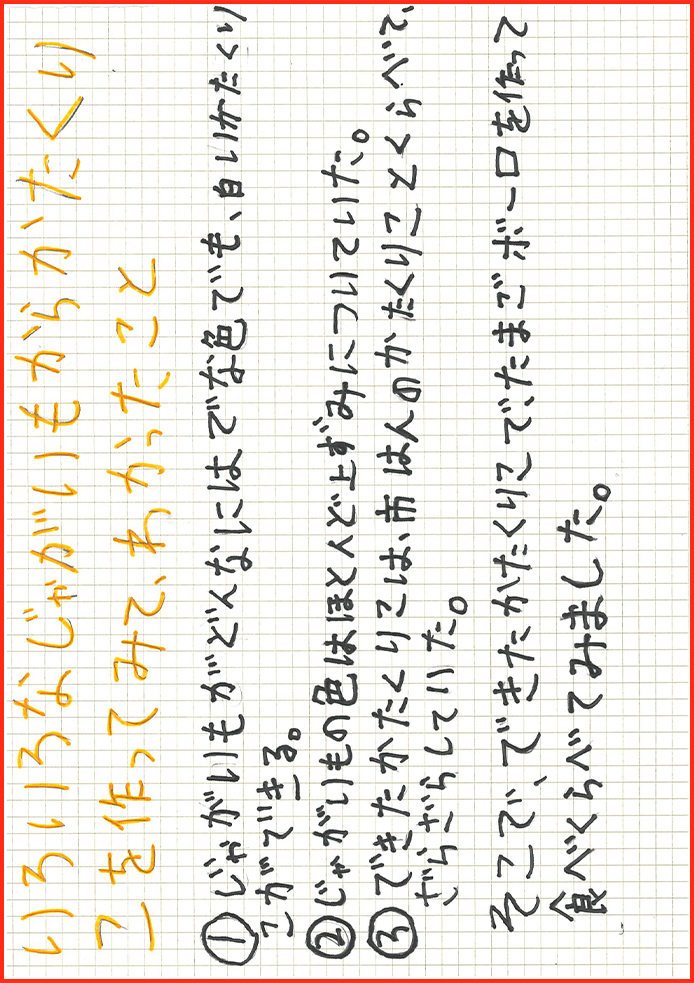 いろいろなじゃがいもからかたくり
こを作ってみて、わかったこと
①じゃがいもがどんなにはでな色でも、白いかたくり
こができる。
②じゃがいもの色はほとんど上ずみについていた。
③できたかたくりこは、市はんのかたくりことくらべて、
ざらざらしていた。
そこで、できたかたくりこで、たまごボーロを作って
食べくらべてみました。